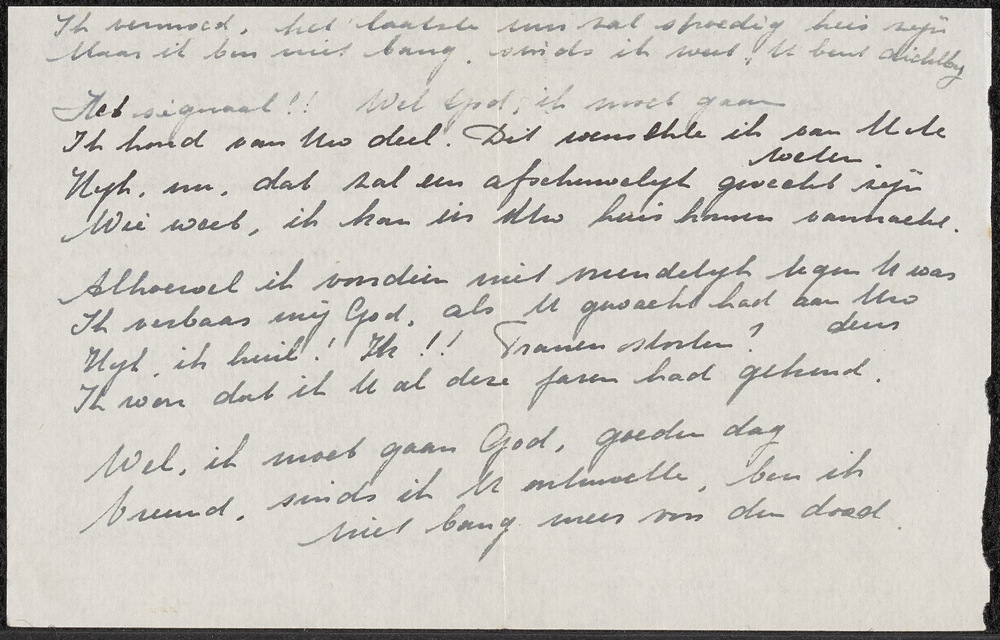 Ik vermoed, het laatste uur zal spoedig hier zijn
Maar ik ben niet bang, sinds ik weet, U bent dichtby
Het signaal!! Wel God, ik moet gaan
Ik houd van Uw deel. Dit wenschte ik van U te
weten.
Kyk, nu, dat zal een afschuwelyk gevecht zijn
Wie weet, ik kan in Uw huis komen vannacht.
Alhoewel ik voordien niet vriendelyk tegen U was
Ik verbaas mij God, als U gewacht had aan Uw
deur
Kyk, ik huil! Ik!! Tranen storten?
Ik wou dat ik U al deze jaren had gekend.
Wel, ik moet gaan God, goeden dag
Vreemd, sinds ik U ontmoette, ben ik
niet bang meer voor den dood.